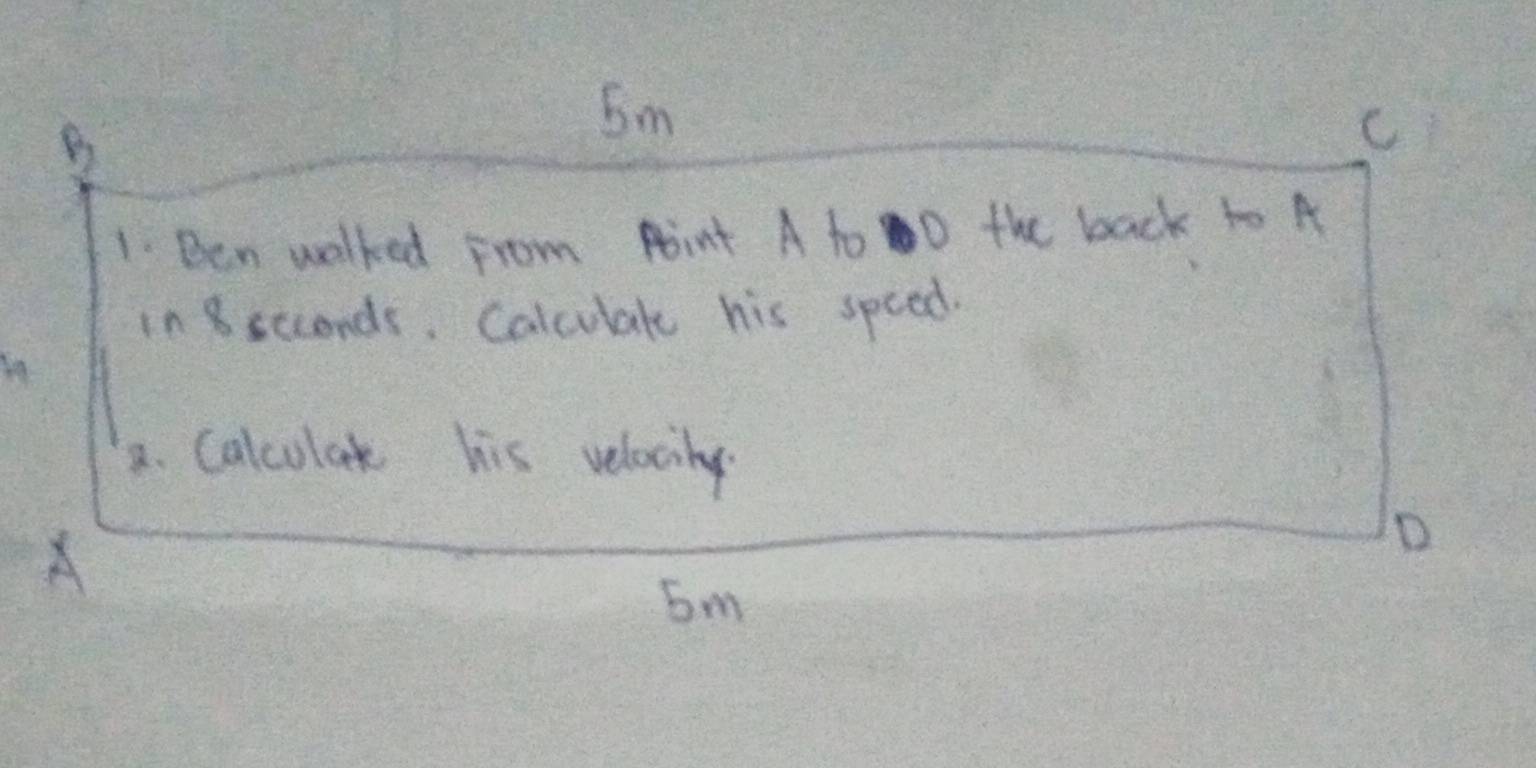 5m
B
C
1. Ben walked From Point A to D the back to A
in 8 seconds. Calculate his speed.
2. Calculate his velocity.
A
D
5m